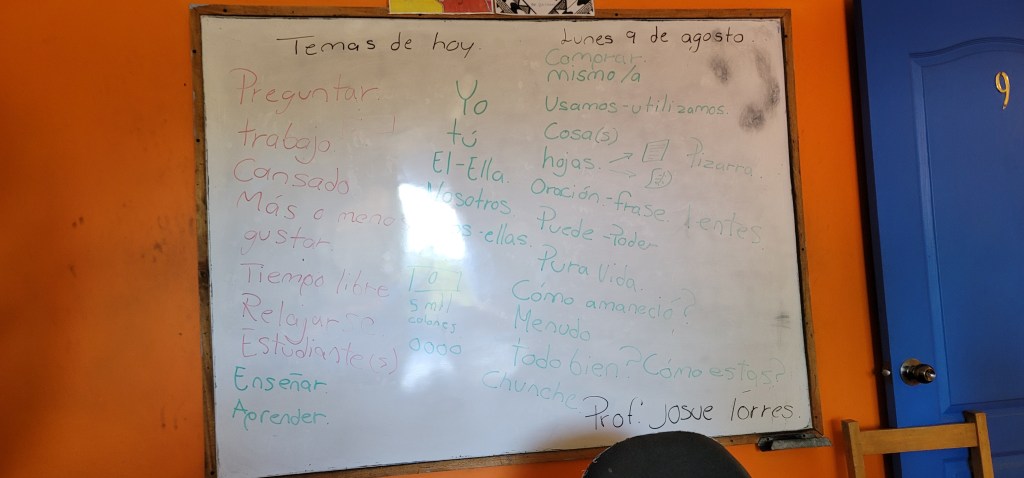 Temas de hoy.
Lunes 9 de agosto.
Preguntar.
trabajo.
Cansado
Más o meno
gustar
Tiempo libre
Relajar
Estudiante(s)
Enseñar.
Aprender.
Yo
tú
El-Ella.
Nosotros
-ellas.
5 mil
colones
0000
Comprar.
mismo/a
Usamos-utilizamos.
Cosa(s)
hojas.
Pizarra.
Oración-frase.
Lentes
Puede-Poder
Pura Vida.
Cómo amaneció?
Menudo
todo bien? Cómo estás?
Chunche
Prof: Josue Torres.
9